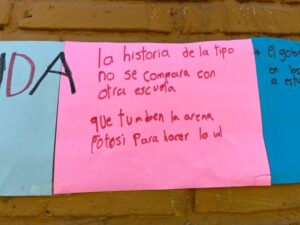 UDA
la historia de la tipo
no se compara con
otra escuela
que tumben la arena
Potosi Para hacer la ul
el gob
en las
a estu